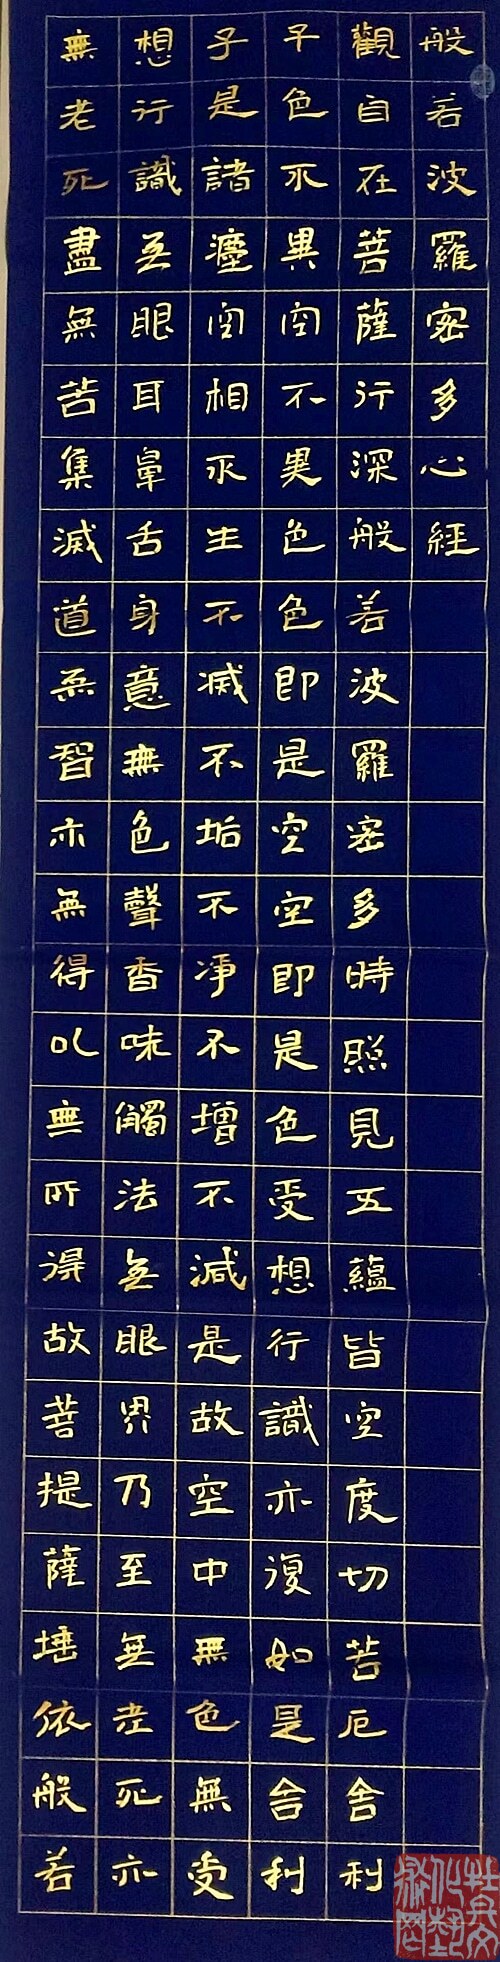 般若波羅密多心經
觀自在菩薩行深般若波羅密多時照見五蘊皆空度切苦厄舍利
子色不異空不異色色即是空空即是色受想行識亦復如是舍利
子是諸灋空相不生不滅不垢不淨不增不減是故空中無色無受
想行識无眼耳鼻舌身意無色聲香味觸法无眼界乃至無老死亦
無老死盡無苦集滅道無智亦無得以無所得故菩提薩埵依般若